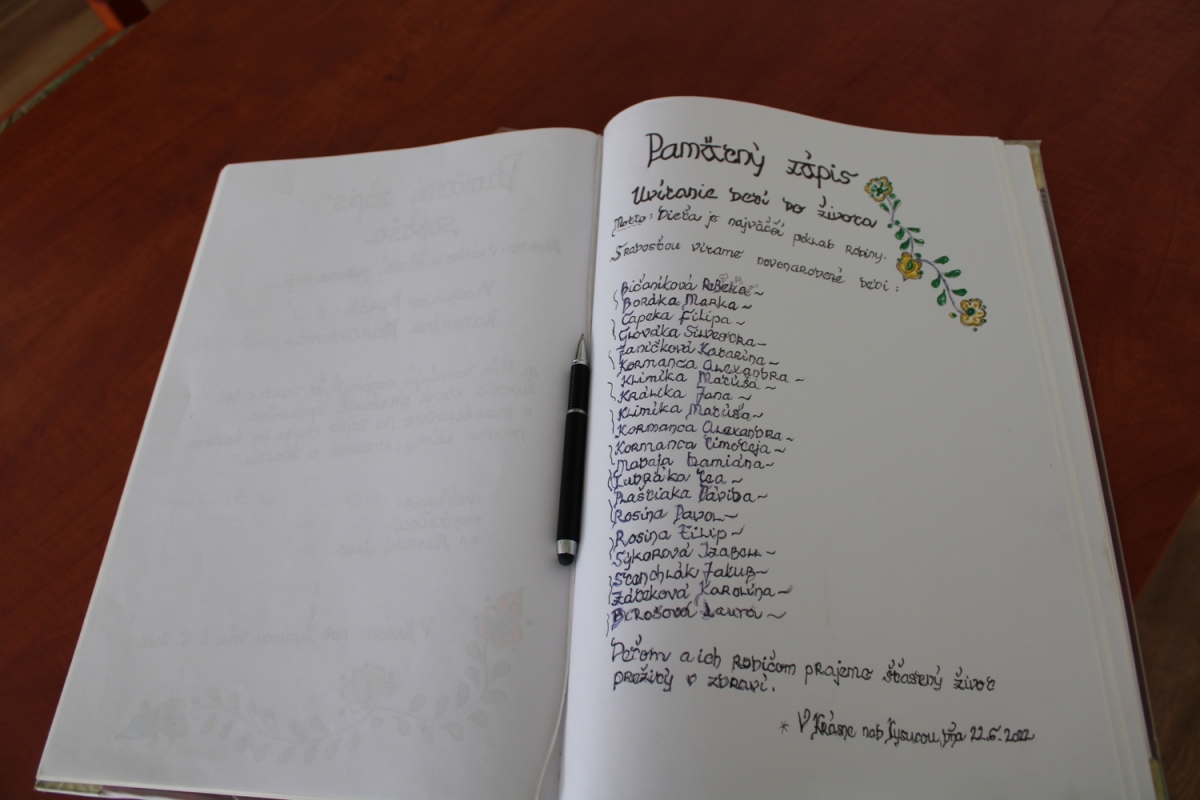 Pamätný zápis
Uvítanie detí do života
Motto: Dieťa je najväčší poklad rodiny.
S radosťou vítame novonarodené deti:
Bičaníková Rebeka~
Boráka Marka~
Čapeka Filipa~
Hlováka Silvestra~
Janíčková Katarína~
Kormanca Alexandra~
Klimika Matúša~
Králika Jana~
Klimika Matúša~
Kormanca Alexandra~
Kormanca Timoteja~
Mataja Damiána~
Plaštiaka Dávida~
Rosina Pavol~
Rosina Filip~
Sýkorová Izabela~
Stanchlák Jakub~
Karolína~
Laura~
Deťom a ich rodičom prajeme šťastený život
prežitý v zdraví.
* V Krásne nad Kysucou, dňa 22.6.2022